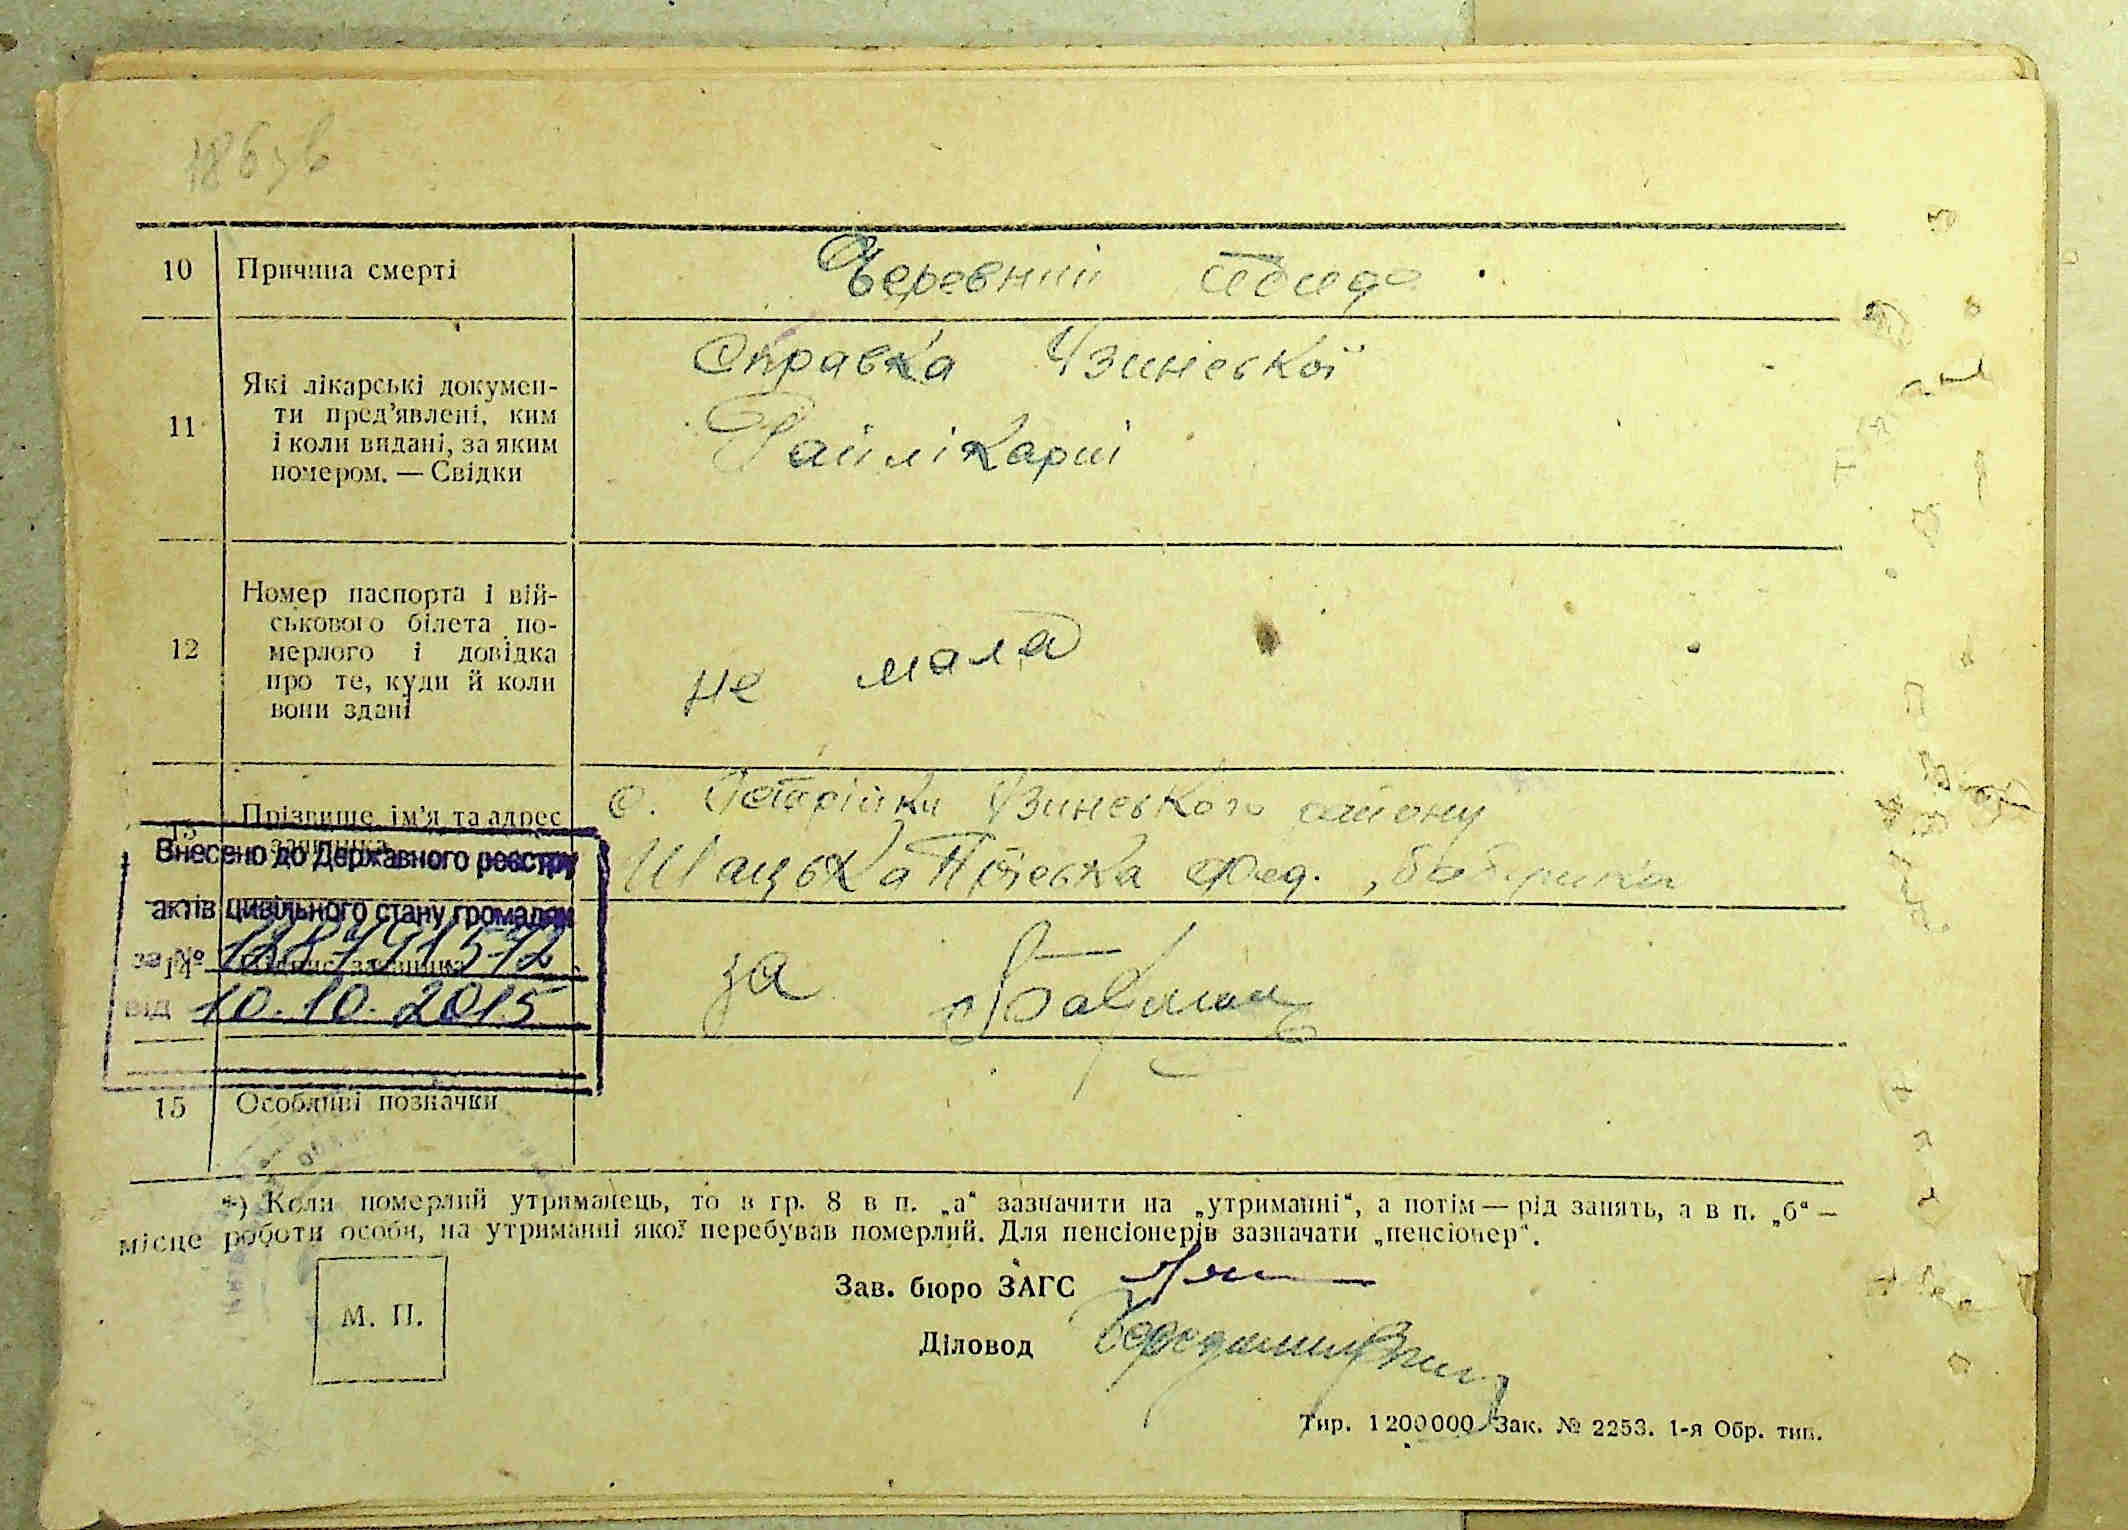 10 Причина смерті
Черевний
11 Які лікарські докумен-
ти пред'явлені, ким
і коли видані, за яким
номером. — Свідки
Справка Узинської
Райлікарні
12 Номер паспорта і вій-
ськового білета по-
мерлого і довідка
про те, куди й коли
вони здані
не мала
13 Прізвище, ім'я та адрес
заявника
с. Узинського району
Фед.
Внесено до Державного реєстру
актів цивільного стану громадян
за №
від 10.10.2015
14 заявника
за
15 Особливі позначки
*) Коли померлий утриманець, то в гр. 8 в п. „а“ зазначити на „утриманні“, а потім — рід занять, а в п. „б“ —
місце роботи особи, на утриманні якої перебував померлий. Для пенсіонерів зазначати „пенсіонер“.
Зав. бюро ЗАГС
М. П.
Діловод
Тир. 1200000 Зак. № 2253. 1-я Обр. тип.